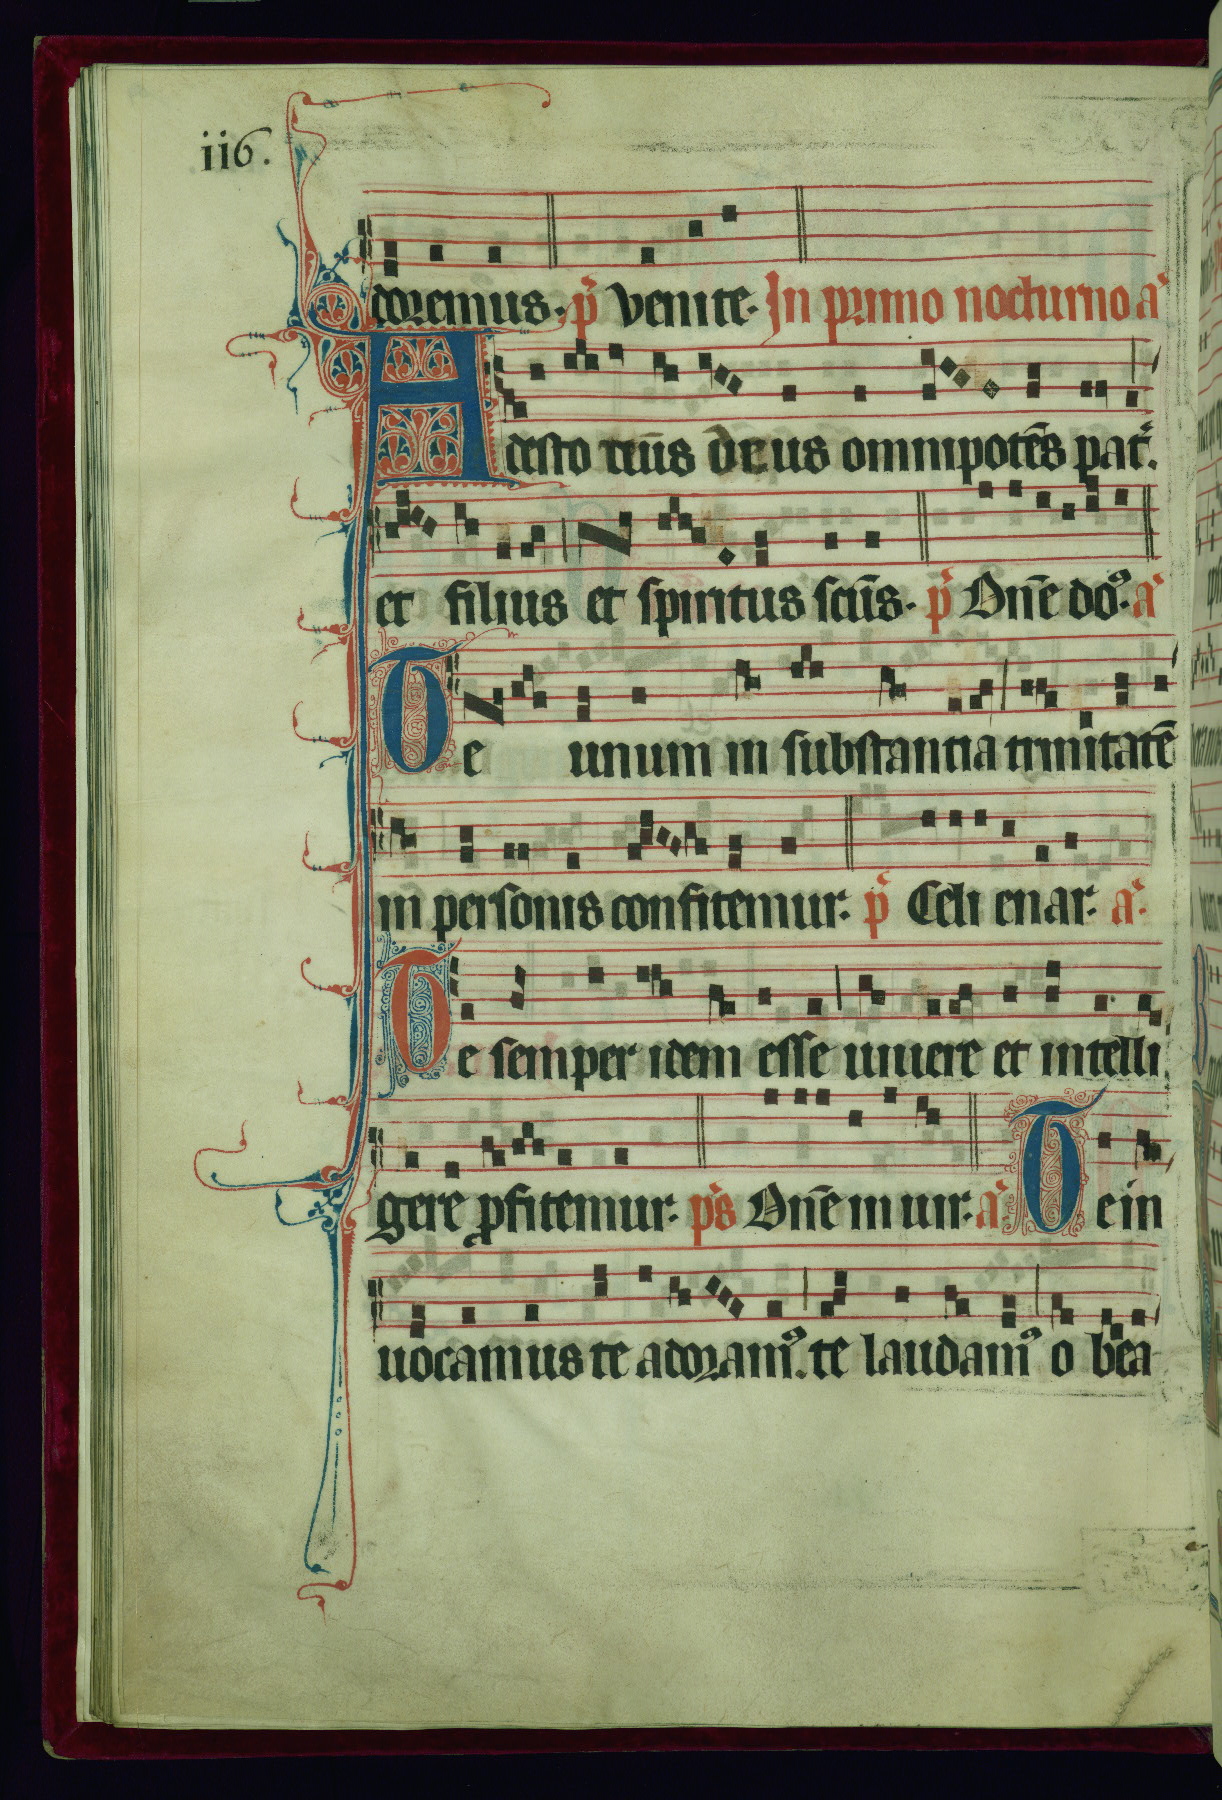 ii6.
doremus. p̄ venite. In primo nocturno a᷑
Adesto deūs deus omnipotēs pat᷑.
et filius et spiritus scūs. p̄ Dn̄e do᷒. a᷑
Te unum in substantia trinitatē
in personis confitemur. p̄ Celi enar. a᷑.
Te semper idem esse uiuere et intelli
gere ꝓfitemur. ps̄ Dn̄e in uir. a᷑. Te in
uocamus te adoram᷒. te laudam᷒ o bea